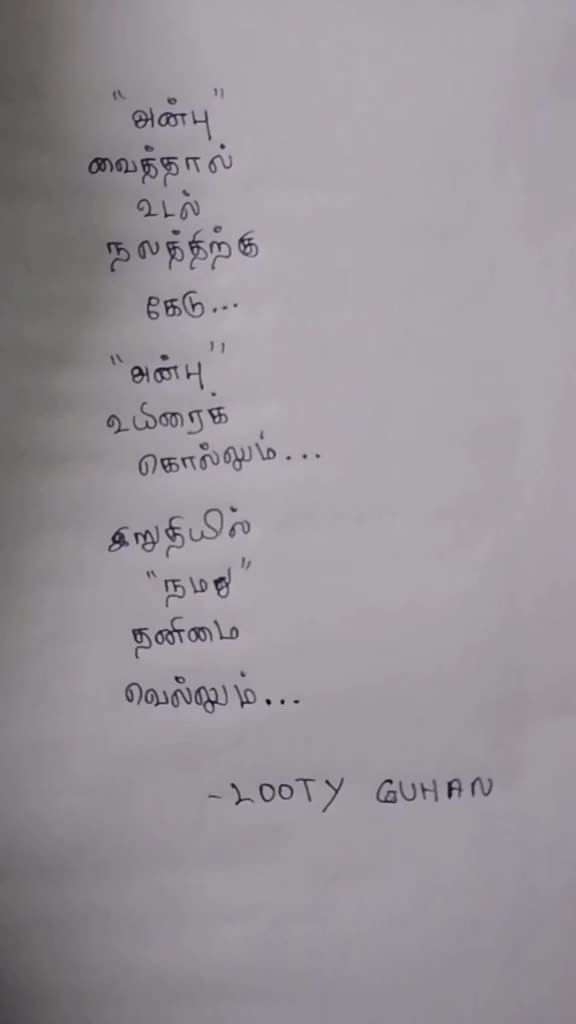 "அன்பு"
வைத்தால்
உடல்
நலத்திற்கு
கேடு...
"அன்பு"
உயிரைக்
கொல்லும்...
இறுதியில்
"நமது"
தனிமை
வெல்லும்...
-LOOTY GUHAN